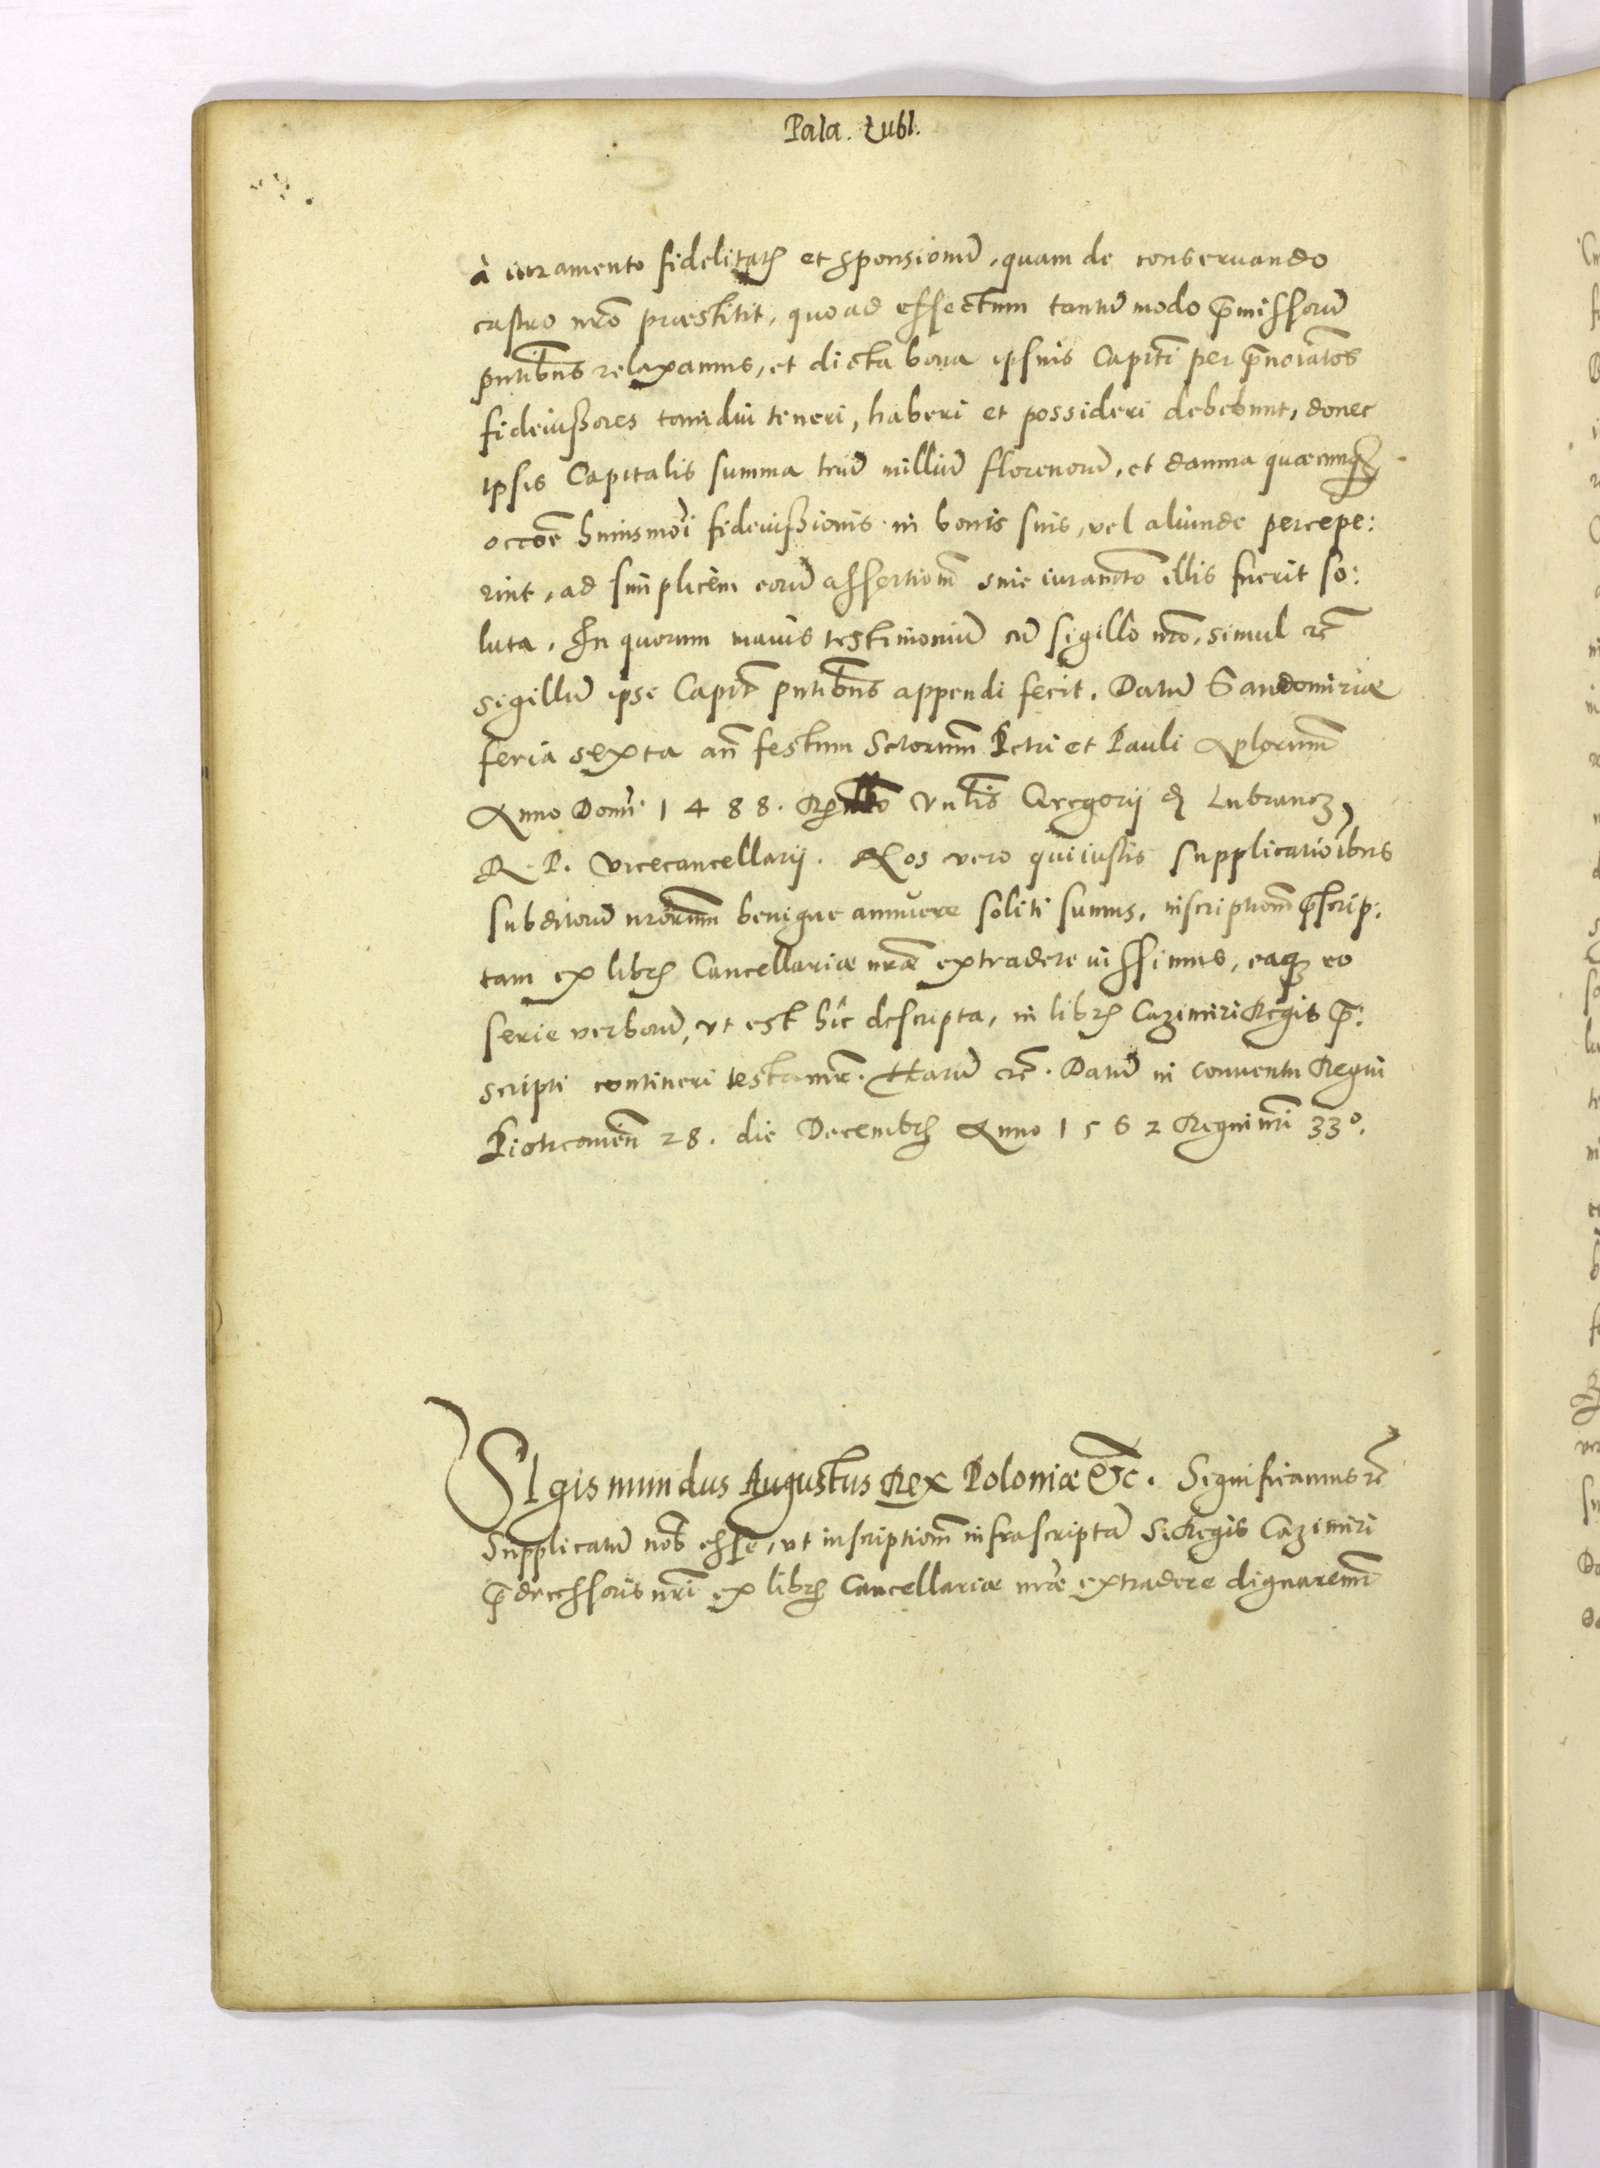 Pala. Lubl.
à iuramento fidelitatis et sponsionũ, quam de conseruando
castro nrõ præstitit, quo ad effectum tantũ modo p̃missorũ
pntibus relaxamus, et dicta bona ipsius Capiti per p̃noiatos
fideiussores tamdiu teneri, haberi et possideri debebunt, donec
ipsis Capitalis summa triũ milliũ florenorũ, et damna quæcunq;
occoẽ huiusmoi fideiussionis in bonis suis, vel aliunde percepe:
rint, ad simplicem eorũ assertionẽ sine iuramẽto illis fuerit so:
luta. In quorum maius testimoniũ cũ sigillo nrõ, simul et
sigillũ ipse Capit̃ pntibus appendi fecit. Datũ Sandomiriæ
feria sexta añ festum Sctorum Petri et Pauli Aplorum
Anno Domi 1488. Rel̃to Vnlis Gregorij d Lubrancz,
R. P. Vicecancellarij. Nos vero qui iustis supplicatioibus
subditorũ nrorum benigne annuere soliti sumus, inscriptionẽ p̃scrip:
tam ex libris Cancellariæ nræ extradere iussimus, eaq; eo
serie verborũ, vt est hic descripta, in libris Cazimiri Regis p̃:
scripti contineri testamur. Harũ etc. Datũ in conuentu Regni
Piotrcouień 28. die Decembris Anno 1562 Regni nri 33º.
SIgismundus Augustus Rex Poloniæ etc. Significamus etc
Supplicatũ nob esse, vt inscriptionẽ infrascriptã S. Regis Cazimiri
p̃decessoris nri ex libris Cancellariæ nræ extradere dignaremur